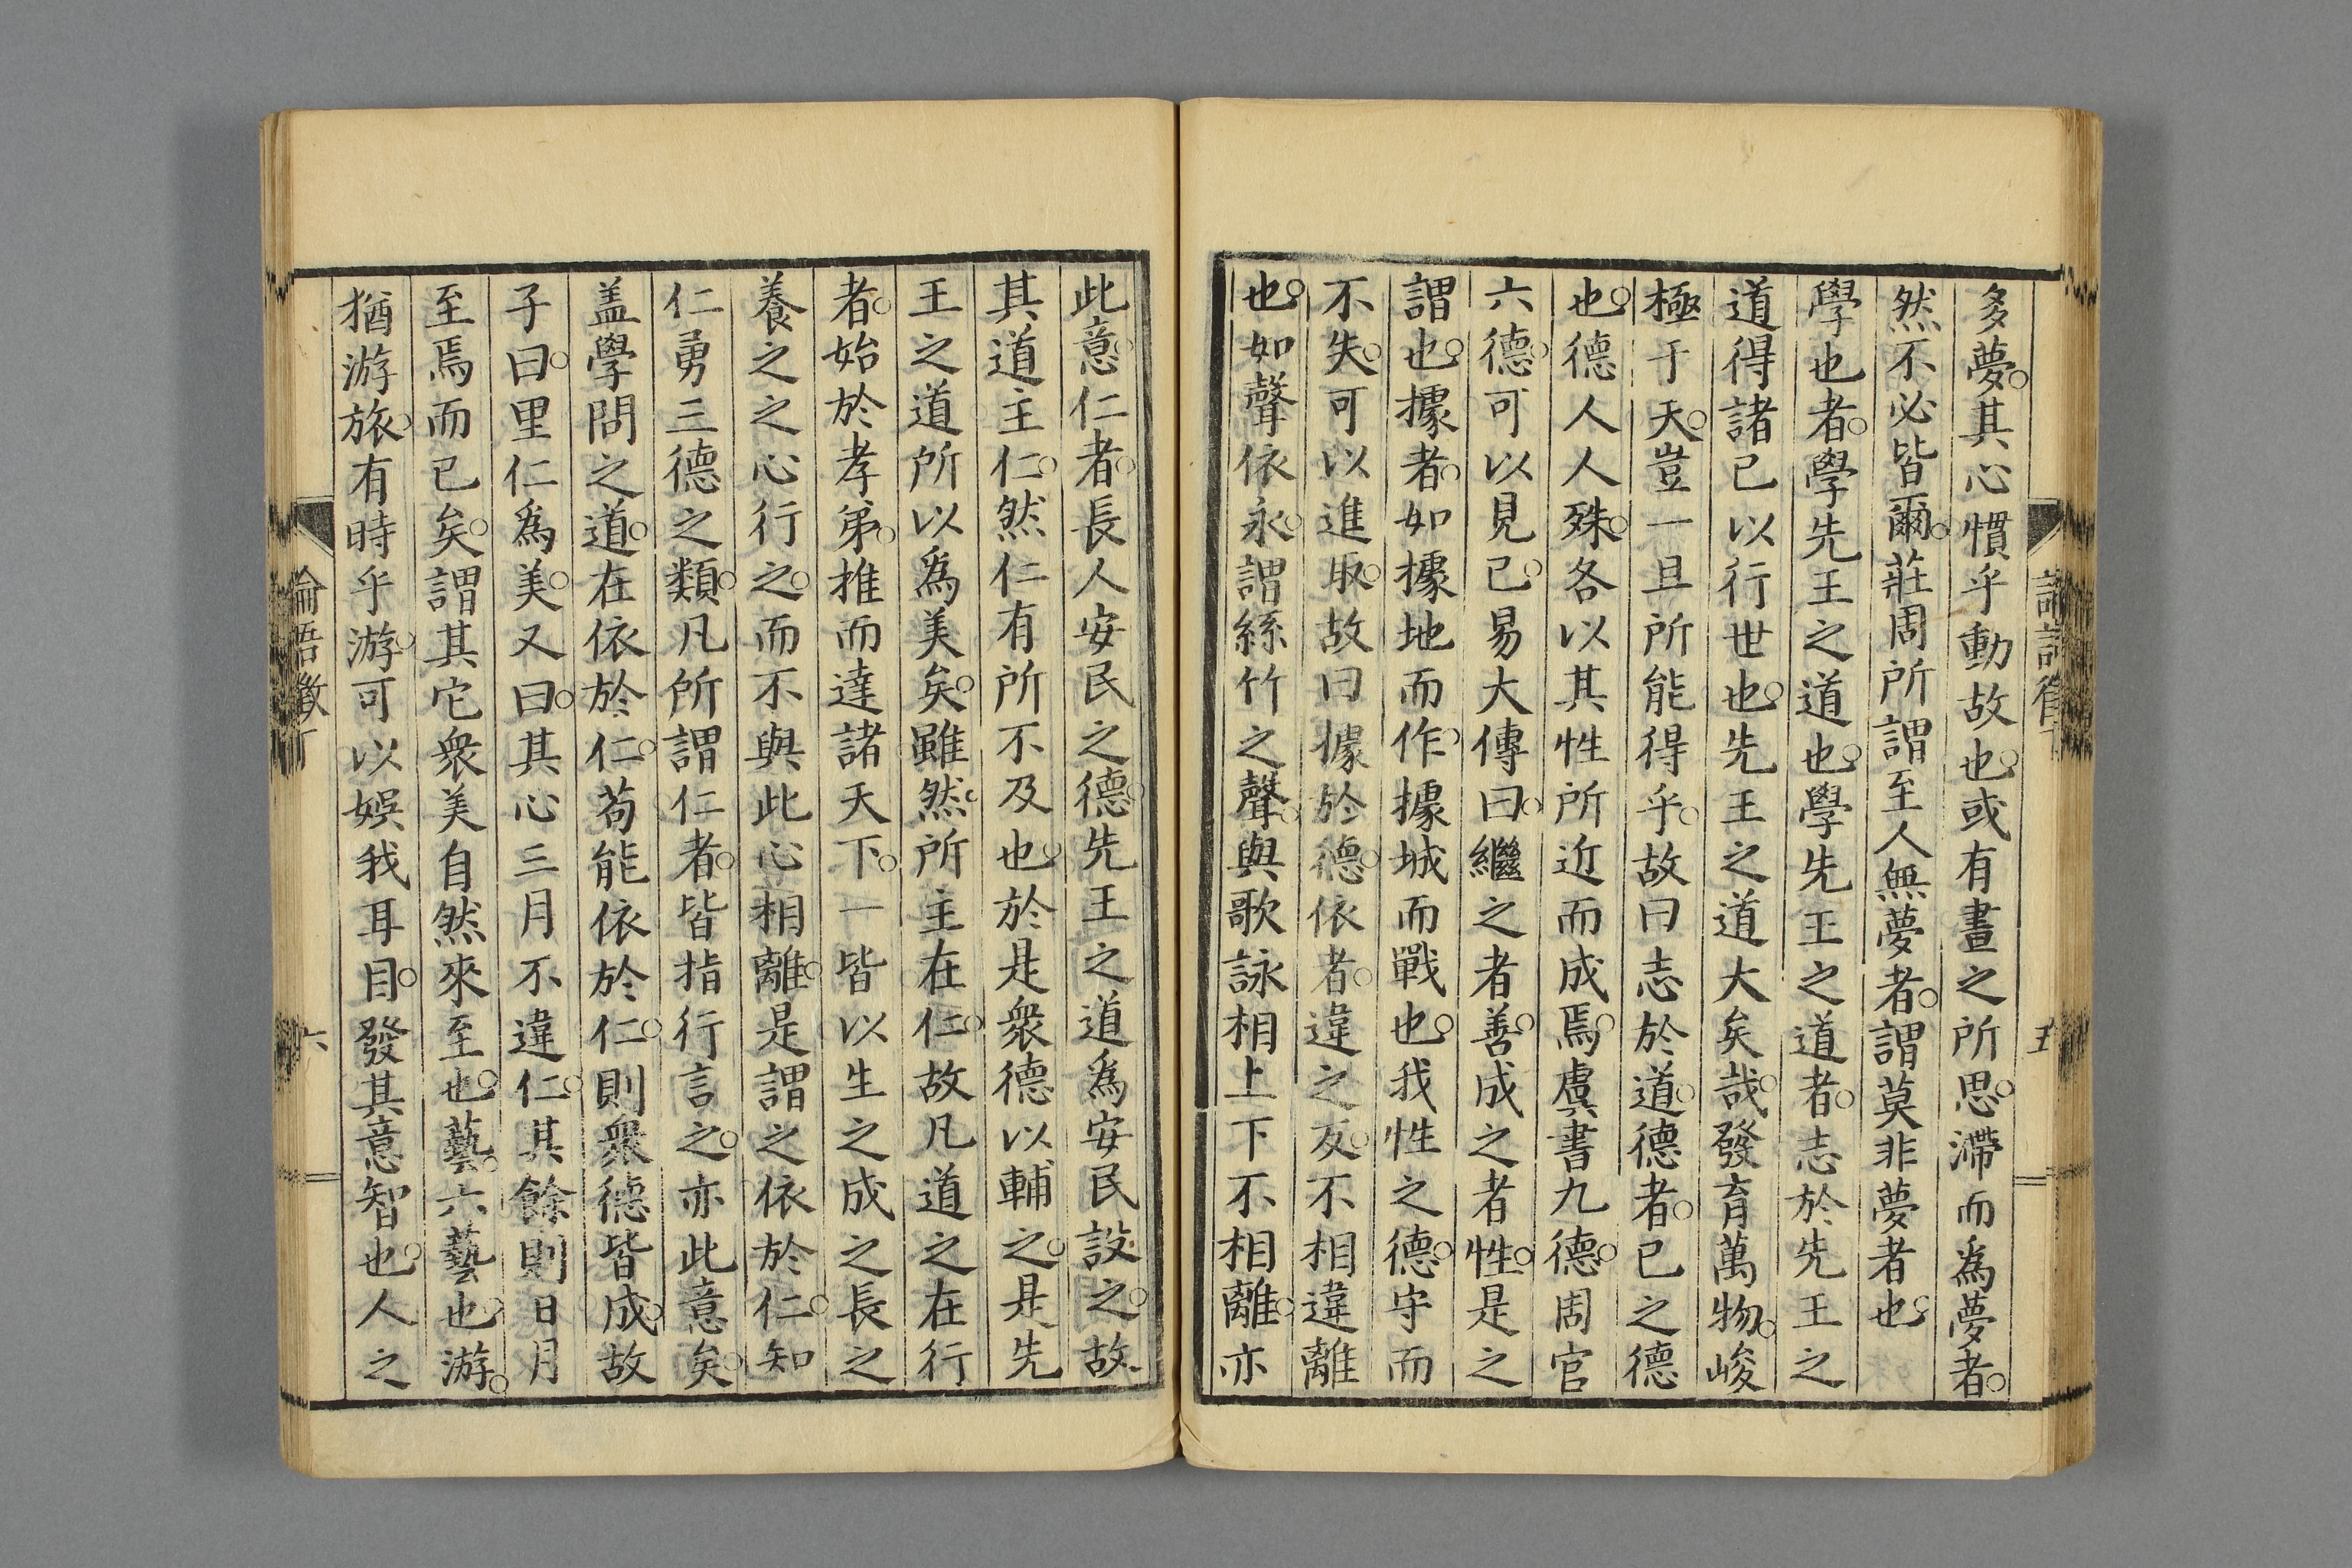 多夢。其心慣乎動故也。或有晝之所思。滯而為夢者。
然不必皆爾。莊周所謂至人無夢者。謂莫非夢者也。
學也者。學先王之道也。學先王之道者。志於先王之
道得諸己以行世也。先王之道大矣哉。發育萬物。峻
極于天。豈一旦所能得乎。故曰志於道。德者。己之德
也。德人人殊。各以其性所近而成焉。虞書九德。周官
六德。可以見已。易大傳曰。繼之者善。成之者性。是之
謂也。據者。如據地而作。據城而戰也。我性之德。守而
不失。可以進取。故曰據於德。依者。違之反。不相違離
也。如聲依永。謂絲竹之聲。與歌詠相上下不相離。亦
論語徵丁
五
此意。仁者。長人安民之德。先王之道為安民設之。故
其道主仁。然仁有所不及也。於是衆德以輔之。是先
王之道所以為美矣。雖然。所主在仁。故凡道之在行
者。始於孝弟。推而達諸天下。一皆以生之成之長之
養之之心行之。而不與此心相離。是謂之依於仁。知
仁勇三德之類。凡所謂仁者。皆指行言之。亦此意矣。
盖學問之道。在依於仁。苟能依於仁。則衆德皆成。故
子曰。里仁為美。又曰。其心三月不違仁。其餘則日月
至焉而已矣。謂其它衆美自然來至也。藝。六藝也。游。
猶游旅。有時乎游。可以娛我耳目。發其意智也。人之
論語徵丁
六